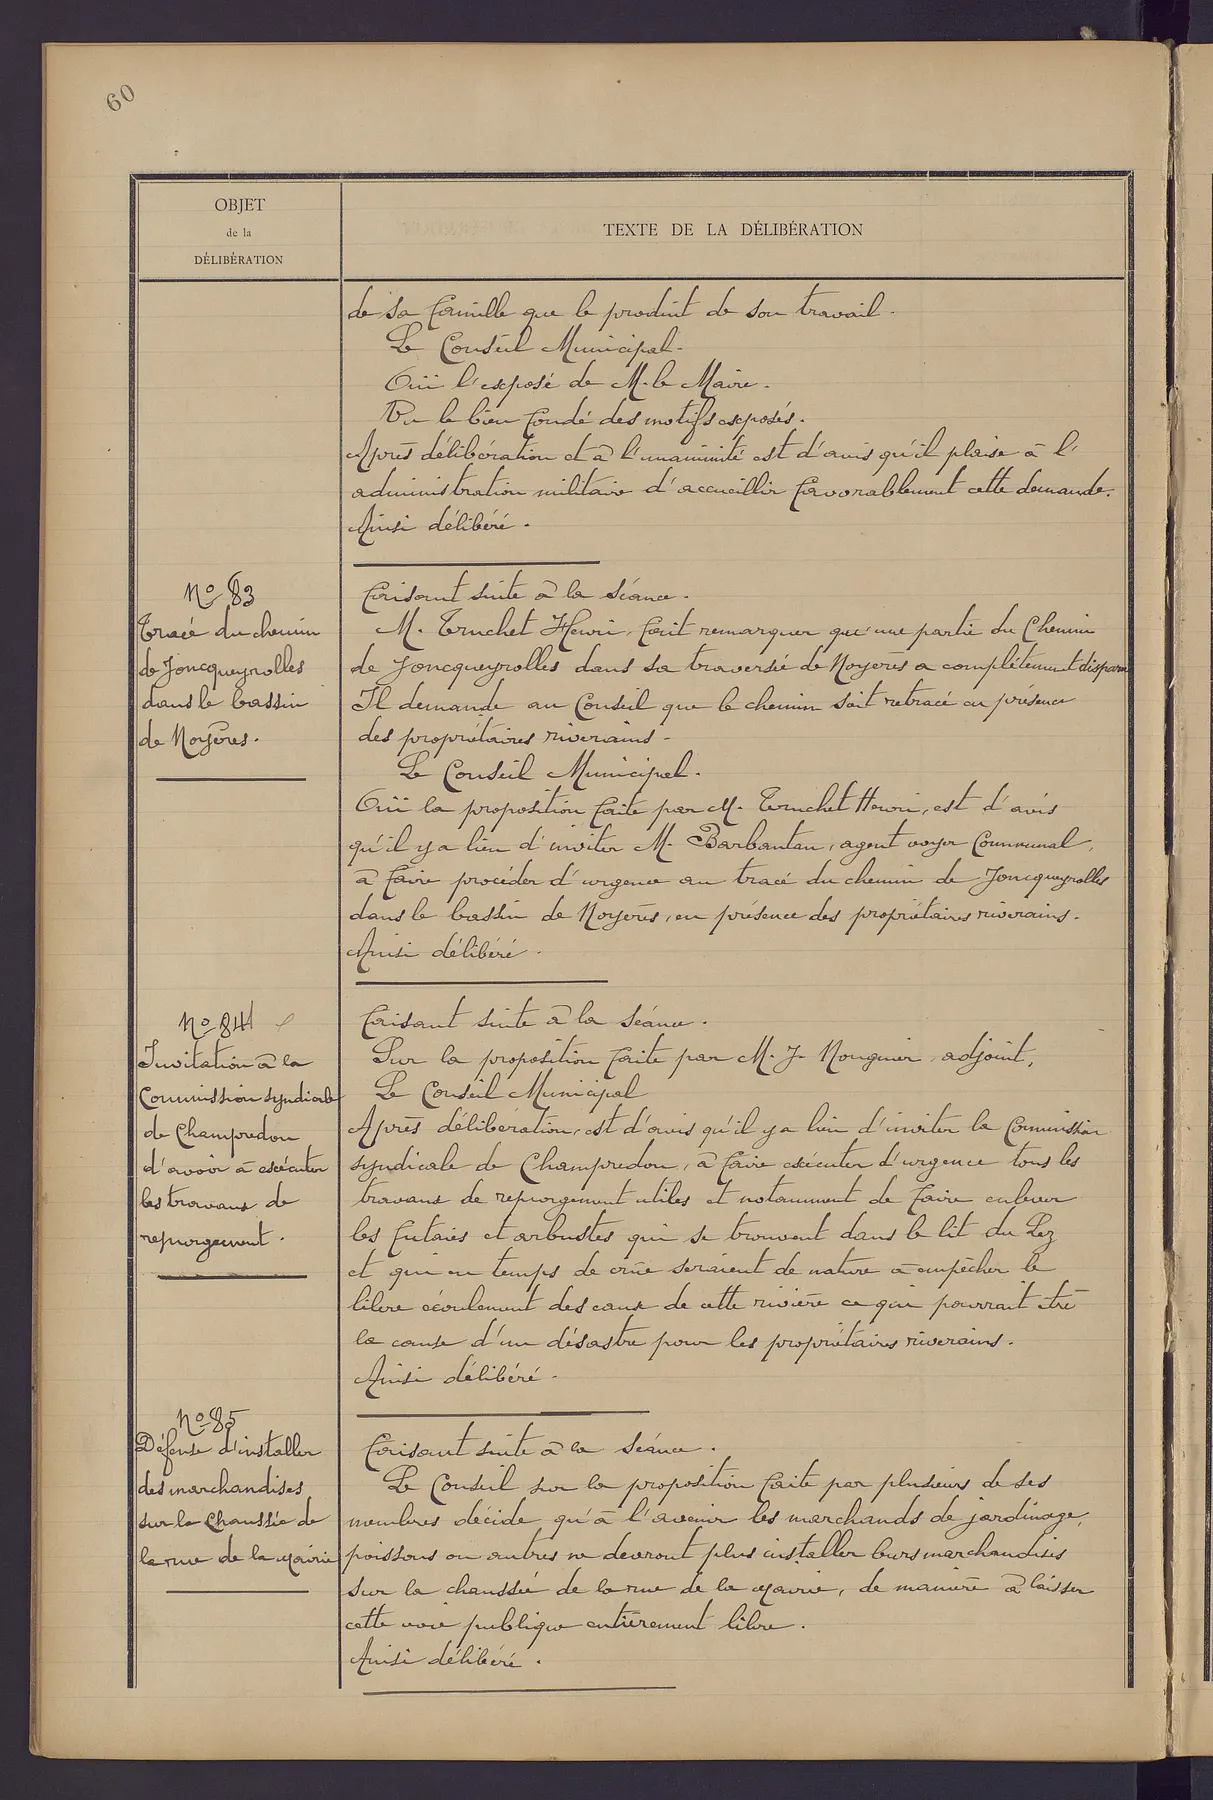 60
OBJET
de la
DÉLIBÉRATION
TEXTE DE LA DÉLIBÉRATION
de sa famille que le produit de son travail.
Le Conseil Municipal.
Ouï l'exposé de M. le Maire.
Vu le bien fondé des motifs exposés.
Après délibération et à l'unanimité est d'avis qu'il plaise à l'
administration militaire d'accueillir favorablement cette demande.
Ainsi délibéré.
No 83
Tracé du chemin
de Joncqueyrolles
dans le bassin
de Noyères.
Faisant suite à la séance.
M. Truchet Henri, fait remarquer qu'une partie du Chemin
de Joncqueyrolles dans sa traversée de Noyerès a complétement disparu
Il demande au Conseil que le chemin soit retracé en présence
des propriétaires riverains.
Le Conseil Municipal.
Ouï la proposition faite par M. Truchet Henri, est d'avis
qu'il y a lieu d'inviter M. Barbantan, agent voyer Communal,
à faire procéder d'urgence au tracé du chemin de Joncqueyrolles
dans le bassin de Noyerès, en présence des propriétaires riverains.
Ainsi délibéré.
No 84
Invitation à la
Commission syndicale
de Champredon
d'avoir à exécuter
les travaux de
repurgement.
Faisant suite à la séance.
Sur la proposition faite par M. J. Nouguier, adjoint,
Le Conseil Municipal
Après délibération, est d'avis qu'il y a lieu d'inviter la Commission
syndicale de Champredon, à faire exécuter d'urgence tous les
travaux de repurgement utiles et notamment de faire enlever
les futaies et arbustes qui se trouvent dans le lit du Lez
et qui en temps de crûe seraient de nature à empêcher le
libre écoulement des eaux de cette rivière ce qui pourrait être
la cause d'un désastre pour les propriétaires riverains.
Ainsi délibéré.
No 85
Défense d'installer
des marchandises
sur la Chaussée de
la rue de la Mairie
Faisant suite à la séance.
Le Conseil sur la proposition faite par plusieurs de ses
membres décide qu'à l'avenir les marchands de jardinage,
poissons ou autres ne devront plus installer leurs marchandises
sur la chaussée de la rue de la Mairie, de manière à laisser
cette voie publique entièrement libre.
Ainsi délibéré.